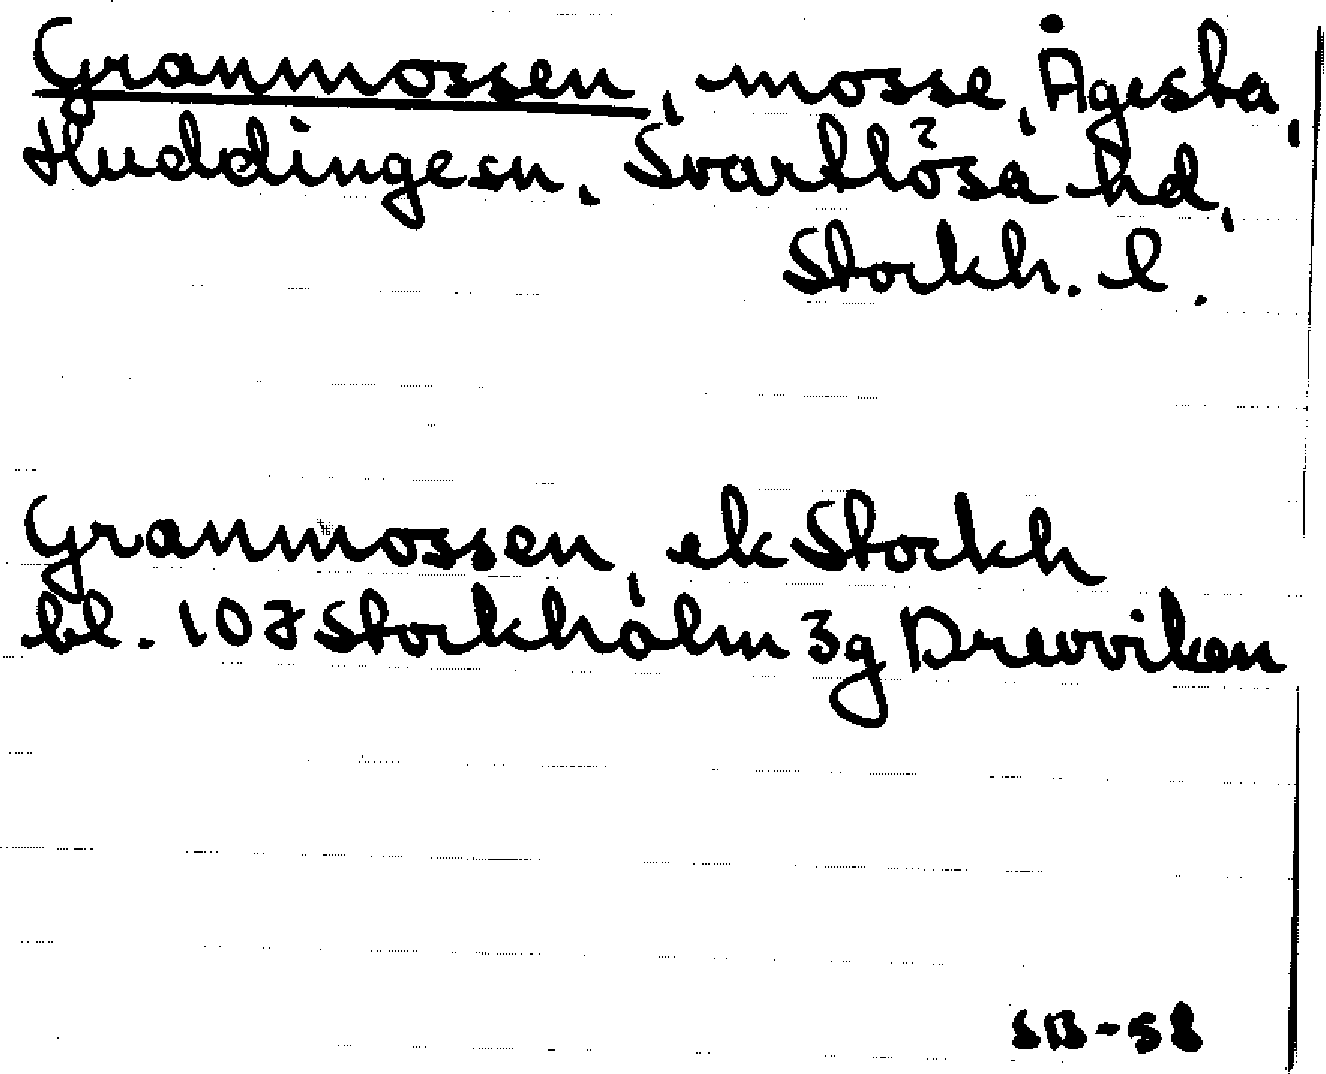 Granmossen, mosse, Ågesta,
Huddinge sn, Svartlösa hd,
Stockh. l.
Granmossen, ek Stockh
bl. 10J Stockholm 3g Drevviken
SB-58